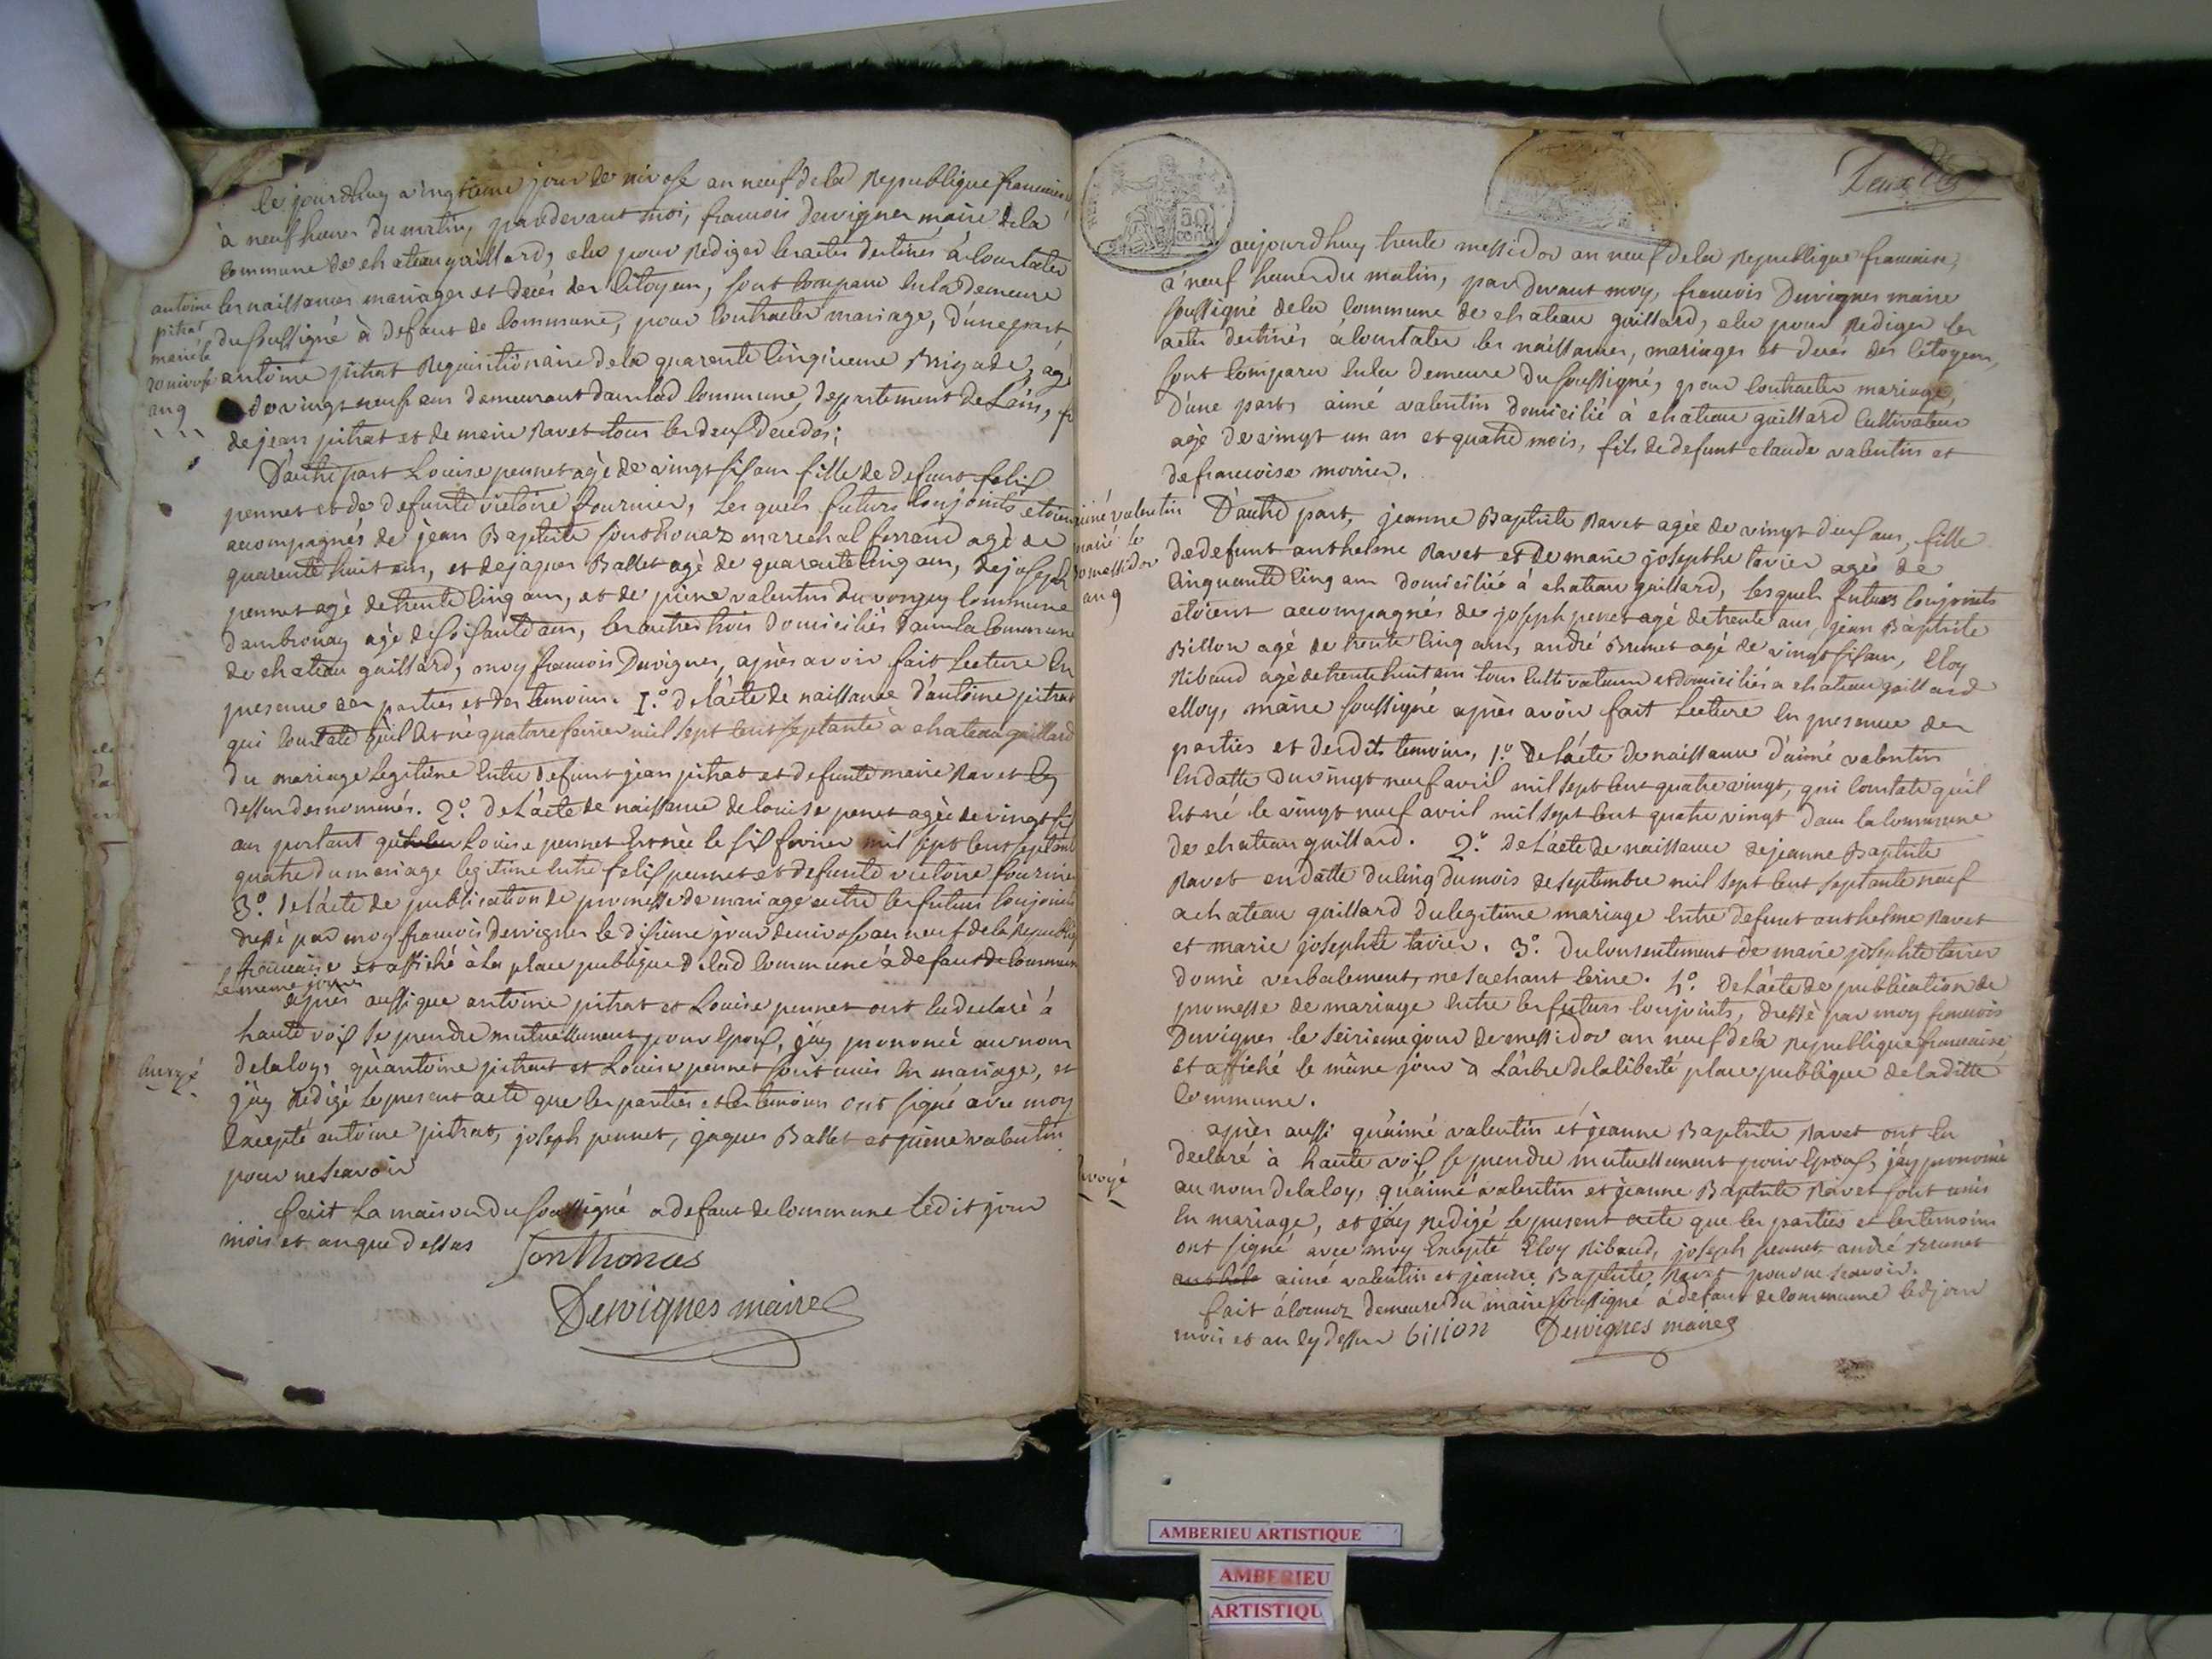 le jourdhuy vingtieme jour de nivose an neuf de la Republique francaise
à neuf heures du matin, pardevant moi, francois Dervignes maire de la
Commune de chateau gaillard, elu pour Rediger les actes destinés à Constater
les naissances mariages et decés des Citoyens, sont comparu en la demeure
du soussigné à defaut de Commune, pour Contracter mariage, d'une part,
antoine pitrat Requisitionaire de la quarente Cinquieme Brigade, agé
de vingt neuf ans demeurant dans lad Commune, departement de Lain,
de jean pitrat et de marie Ravet tous les deux decedés;
antoine
pitrat
marié le
20 nivose
an 9
D'autre part Louise pennet agée de vingt six ans fille de defunt felix
pennet et de defunte victoire fournier, Les quels futurs Conjoints etoient
accompagnés de jean Baptiste sonthonaz marechal ferrand agé de
quarente huit ans, et de jaques Ballet agé de quarente Cinq ans, de joseph
pennet agé de trente Cinq ans, et de pierre valentin du vorgey Commune
dambronay agé de soisante ans, les autres trois domiciliés dans la Commune
de chateau gaillard, moy francois Dervignes, après avoir fait Lecture En
presence des parties et des temoins. 1.º de l'acte de naissance d'antoine pitrat
qui Constate qu'il Est né quatorze fevrier mil sept Cent septante à chateau gaillard
du mariage Legitime Entre defunt jean pitrat et defunte marie Ravet Cy
dessus denommés. 2.º de L'acte de naissance de louise penet agée de vingt six
ans portant que Louise pennet Est née le six fevrier mil sept Cent septante
quatre du mariage legitime Entre felix pennet et defunte victoire fournier
3.º de L'acte de publication de promesse de mariage entre les futurs Conjoints
dressé par moy francois Dervignes le dixieme jour de nivose an neuf de la Republique
francaise et affiché à la place publique de lad Commune à defaut de Commune
le meme jour
après aussi que antoine pitrat et Louise pennet ont Eu declaré à
haute voix se prendre mutuellement pour Epoux, j'ay prononcé au nom
de la loy, qu'antoine pitrat et Louise pennet sont unis En mariage, et
j'ay Redigé Le present acte que les parties et les temoins ont signé avec moy
Excepté antoine pitrat, joseph pennet, jaques Ballet et pierre valentin
pour ne scavoir
Envoyé
fait La maison du soussigné a defaut de Commune Ledit jour
mois et an que dessus
Sonthonas
Dervignes maire
50
cent
aujourdhuy trente messidor an neuf de la Republique francaise,
à neuf heures du matin, par devant moy, francois Dervignes maire
soussigné de la Commune de chateau gaillard, elu pour Rediger les
actes destinés à Constater les naissances, mariages et decés des Citoyens,
sont Comparu En la demeure du soussigné, pour Contracter mariage,
D'une part, aimé valentin domicilié à chateau gaillard Cultivateur
agé de vingt un an et quatre mois, fils de defunt claude valentin et
de francoise
aimé valentin
marié le
30 messidor
an 9
D'autre part, jeanne Baptiste Ravet agée de vingt deux ans, fille
de defunt anthelme Ravet et de marie josephte tavier agée de
Cinquante Cinq ans domiciliée à chateau gaillard, Lesquels futurs Conjoints
etoient accompagnés de joseph penet agé de trente ans, jean Baptiste
Billon agé de trente Cinq ans, andré Brunet agé de vingt six ans, Eloy
Ribaud agé de trente huit ans tous Cultivateurs et domiciliés a chateau gaillard
Moy, maire soussigné après avoir fait Lecture En presence des
parties et desdits temoins, 1.º de L'acte de naissance d'aimé valentin
En datte du vingt neuf avril mil sept Cent quatre vingt, qui Constate qu'il
Est né le vingt neuf avril mil sept Cent quatre vingt dans la Commune
de chateau gaillard. 2.º de L'acte de naissance de jeanne Baptiste
Ravet en datte du Cinq du mois de septembre mil sept Cent septante neuf
a chateau gaillard du legitime mariage Entre defunt anthelme Ravet
et marie josephte tavier. 3.º du Consentement de marie josephte tavier
donné verbalement, ne sachant Ecrire. 4.º de L'acte de publication de
promesse de mariage Entre les futurs Conjoints, dressé par moy francois
Dervignes le seizieme jour de messidor an neuf de la Republique francaise
Et affiché le même jour à L'arbre de la liberté place publique de la ditte
Commune.
après aussi qu'aimé valentin et jeanne Baptiste Ravet ont Eu
declaré à haute voix se prendre mutuellement pour Epoux, j'ay prononcé
au nom de la loy, qu'aimé valentin et jeanne Baptiste Ravet sont unis
En mariage, et j'ay Redigé Le present acte que les parties et les temoins
ont signé avec moy Excepté Eloy Ribaud, joseph pennet, andré Brunet
aimé valentin et jeanne Baptiste Ravet pour ne scavoir.
Envoyé
fait à demeure du maire soussigné à defaut de Commune led jour
mois et an Cy dessus billon Dervignes maire
AMBERIEU ARTISTIQUE
AMBERIEU
ARTISTIQU